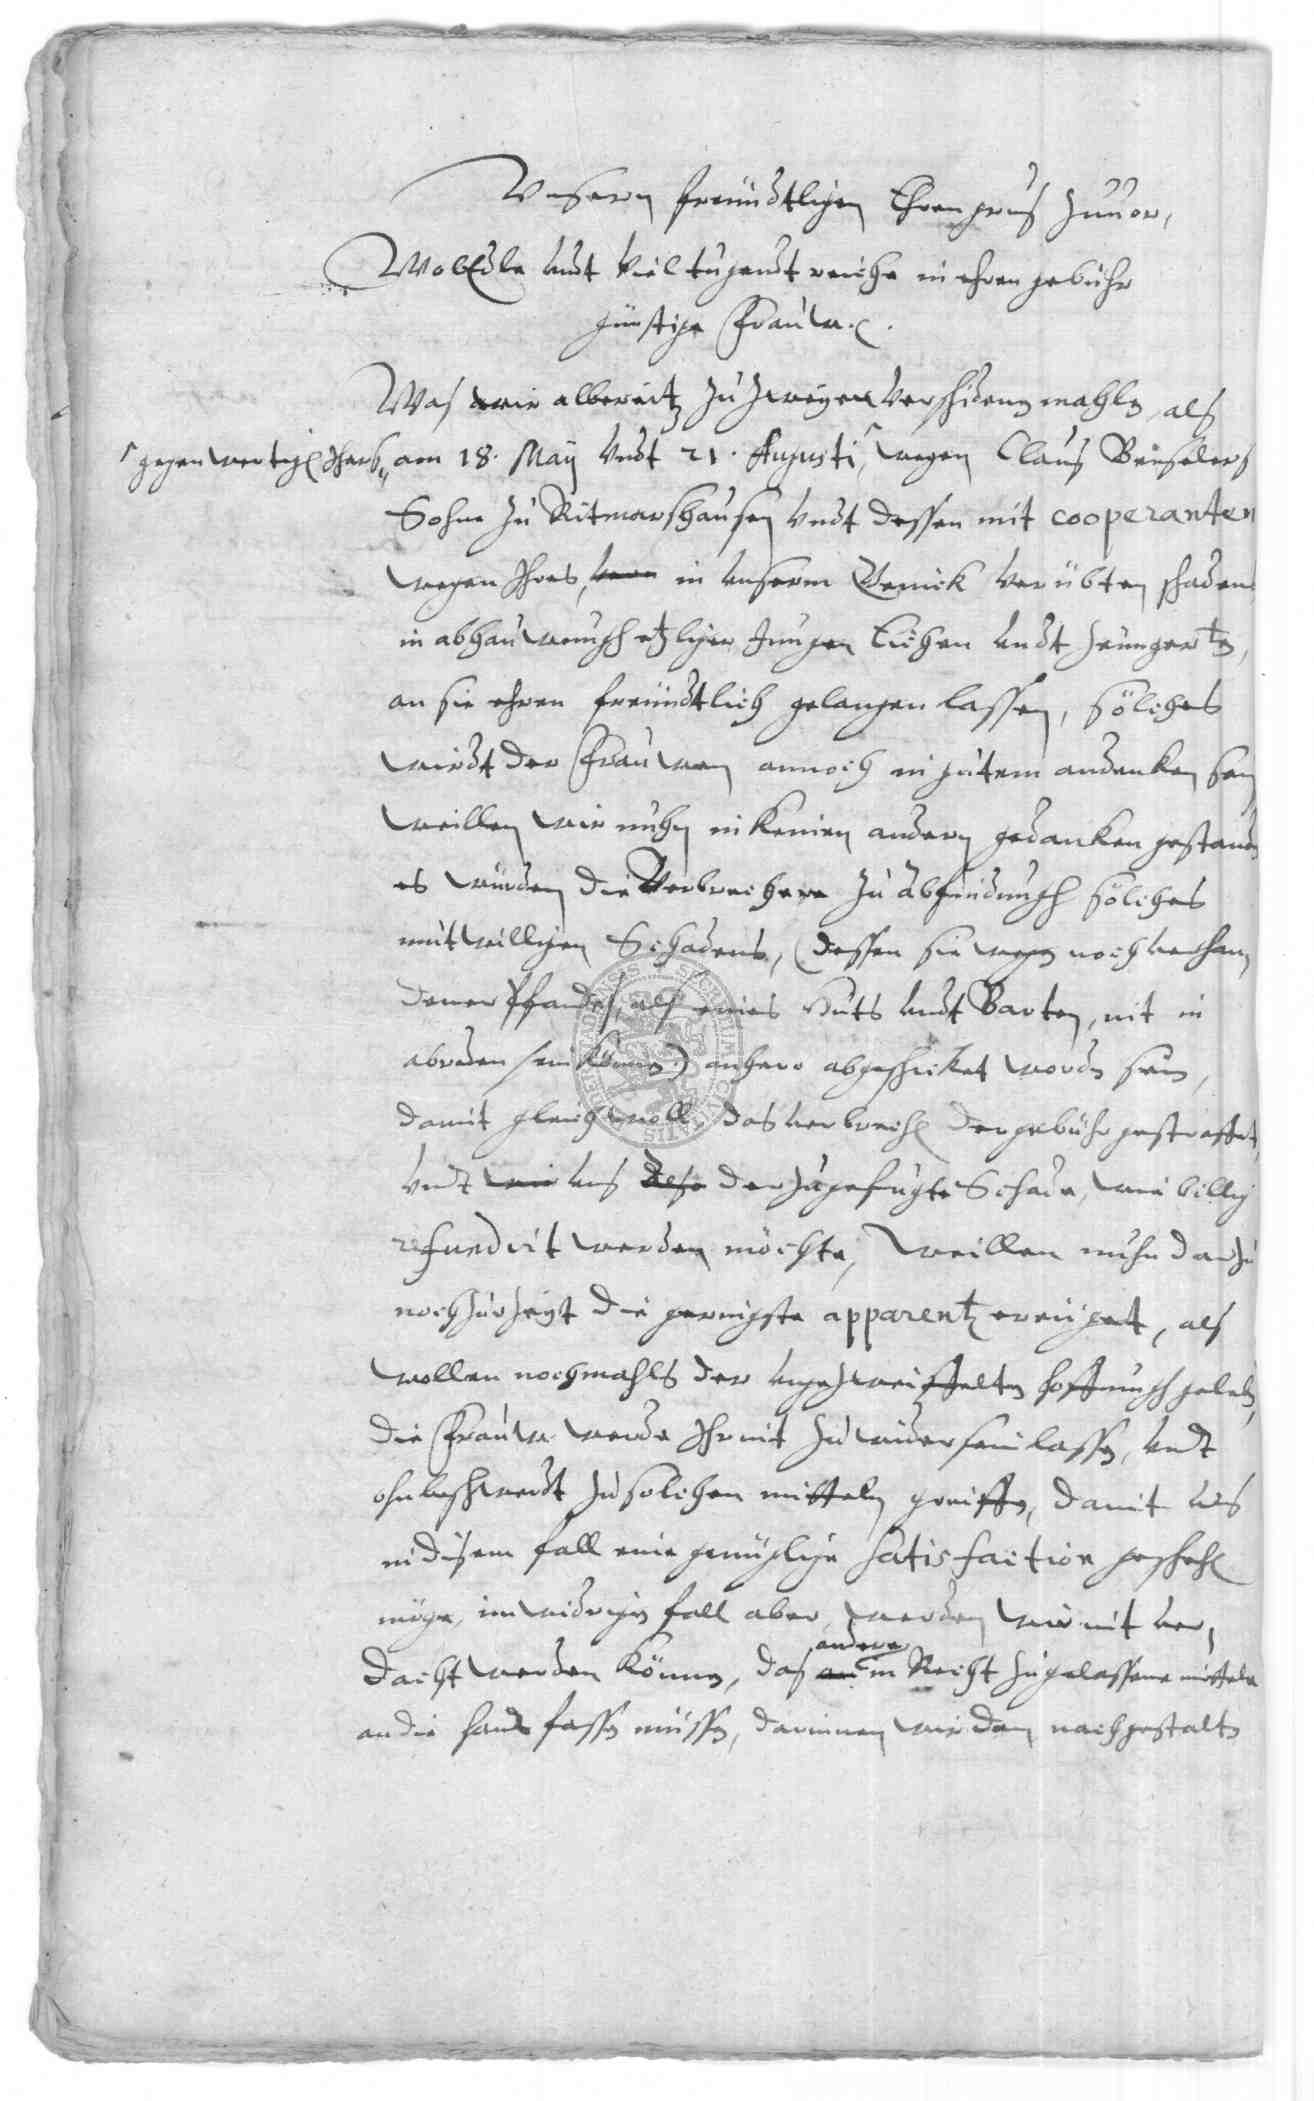 Unsern freündtligen Ehrengrus zuuor,
WolEdle undt Vieltugendtreiche in ehren gebühr
günstige Frauw.
Was wir albereitz zu zweyen Verschidenen mahln, als
gegenwertig Jhars, am 18. Maÿ Undt 21. Augusti, wegen Claus
Sohne zu Ritmarshausen Undt dessen mit cooperanten
wegen Jhres, in unserm verübten schadens
in abhauwungh etzliger Jungen Eichen undt heingerten,
an sie ehren freündtlich gelangen lassen, sölches
wirdt der Frauwen annoch in gutem andenken sein
weillen wir nuhn in keinen andern gedanken gestanden
es würden die Verbrechere zu abfindungh sölches
mutwilligen Schadens, (dessen sie wegen noch verhan¬
dener Pfandes, als eines Huts undt Barten, nit in
abreden sein können) anhero abgeschicket worden sein,
damit gleichwoll das verbrech der gebühr gestraffet,
Undt wir uns der zugefügte Schade, wie billig
refundirt werden möchte, weillen nuhn darzu
nochzurzeyt die geringste apparentz ereüget, als
wollen nochmahls der ungezweiffelten hoffnungh geleben,
die Frauw werde Jhr nit zu wider sein lassen, undt
ohnbeschwerdt zu solchen mitteln greiffen, damit uns
in disem fall eine genügliche satisfaction gescheh
möge, im widrigen fall aber, werden wir nit ver¬
dacht werden können, das andere im Recht zugelassene mittele
an die handt fassen müssen, darinnen wir dan nachgestalten